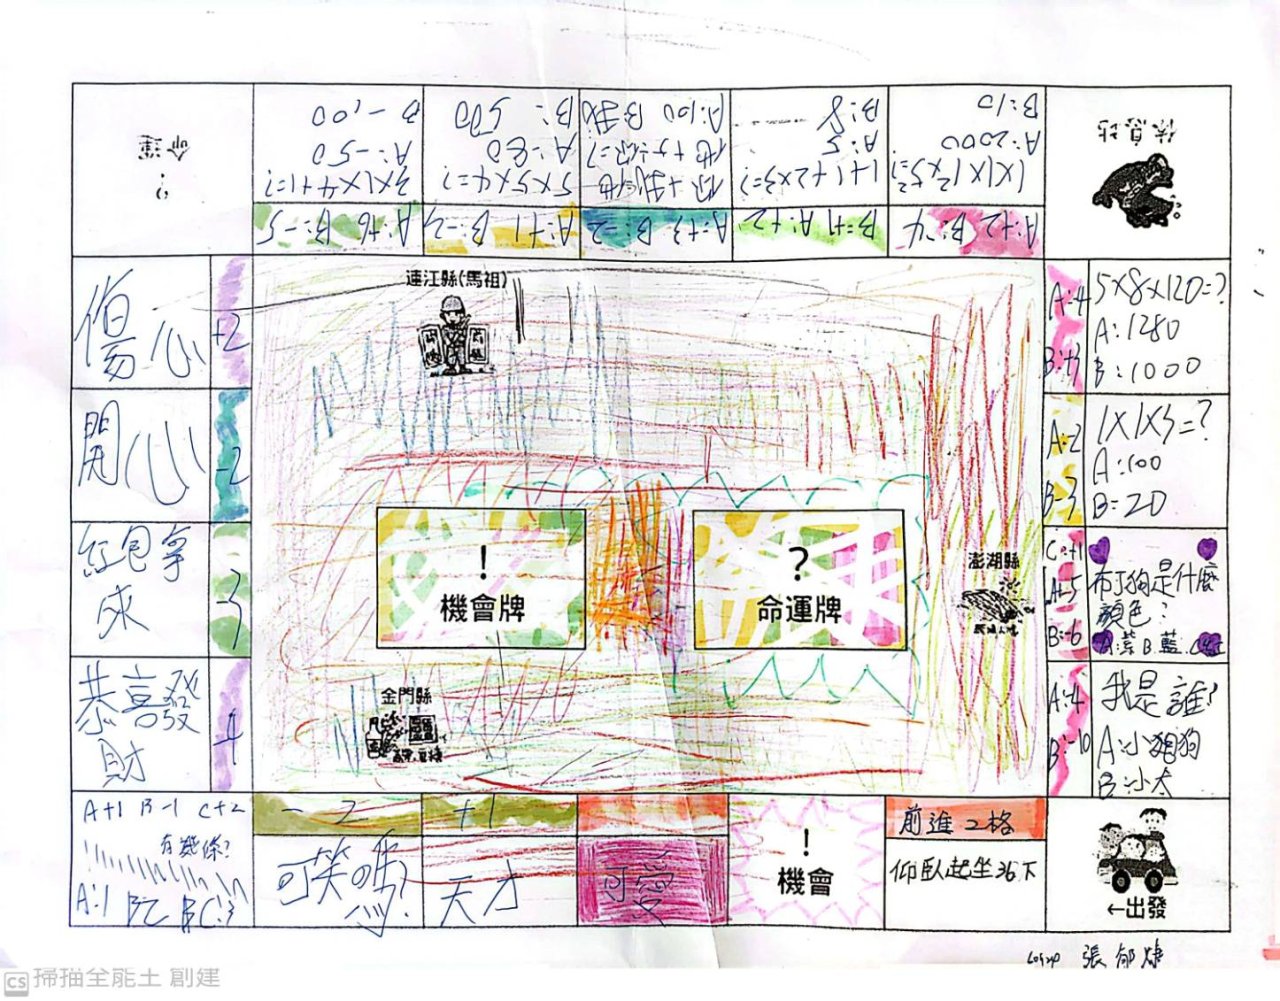 ?
命運
3×1×4+1=?
A:-50
B-1,00
A:+6 B:-5
5×5×4=?
A:-60
B:500
A:+1 B-2
A:100 B:我
A:+3 B:-2
1+1+2×3=?
A:5
B:8
B:+1 A:+2
A:2000
B:10
A:+2 B:-4
休息站
傷心
+2
開心
-2
紅包拿
來
-3
恭喜發
財
連江縣(馬祖)
!
機會牌
?
命運牌
澎湖縣
金門縣
A:-4
B:+3
5×8×120=?
A:1280
B:1000
A:-2
B:-3
1×1×3=?
A:100
B=20
C:+1
A:-5
B:-6
布丁狗是什麼
顏色?
A:黃 B.藍.C紅
A:-4
B:-10
我是誰?
A:小狗狗
B:小太
A+1 B-1 C+2
有幾條?
A:1 B:2 C:3
-2
可笑嗎?
+1
天才
可愛
!
機會
前進2格
仰臥起坐36下
←出發
張郁婕
CS 掃描全能王 創建